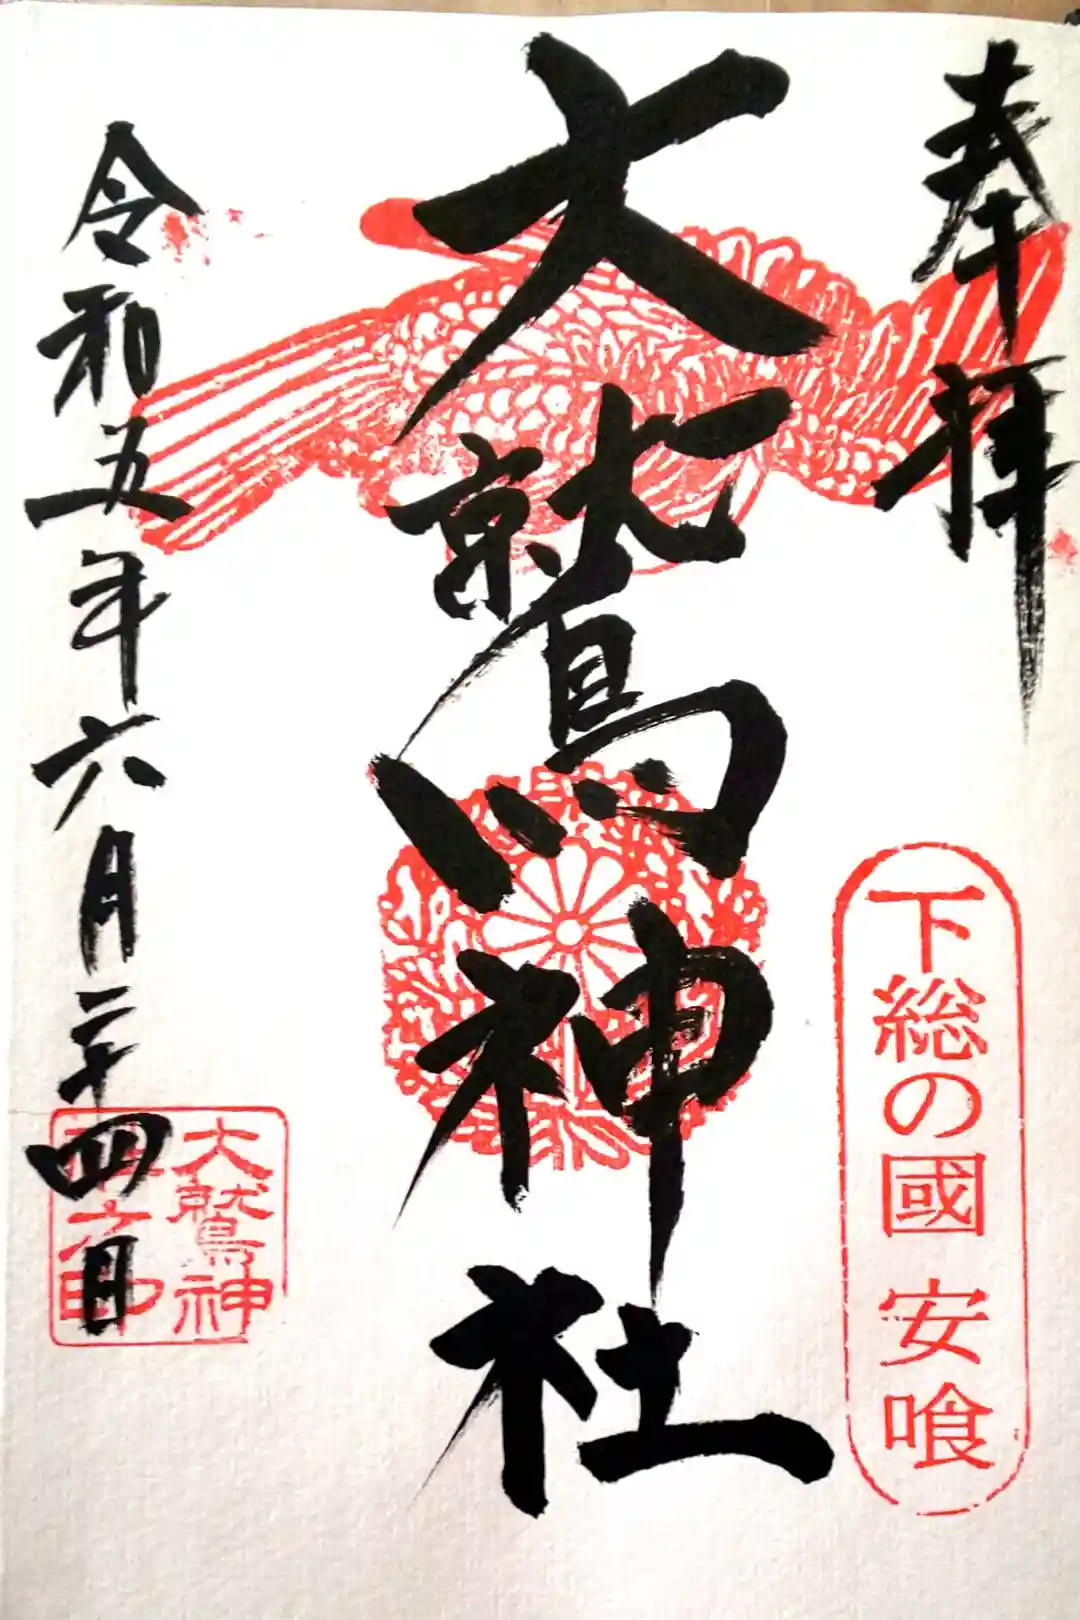 奉拝
下総の國 安喰
大鷲神社
大鷲神
令和五年六月二十四日